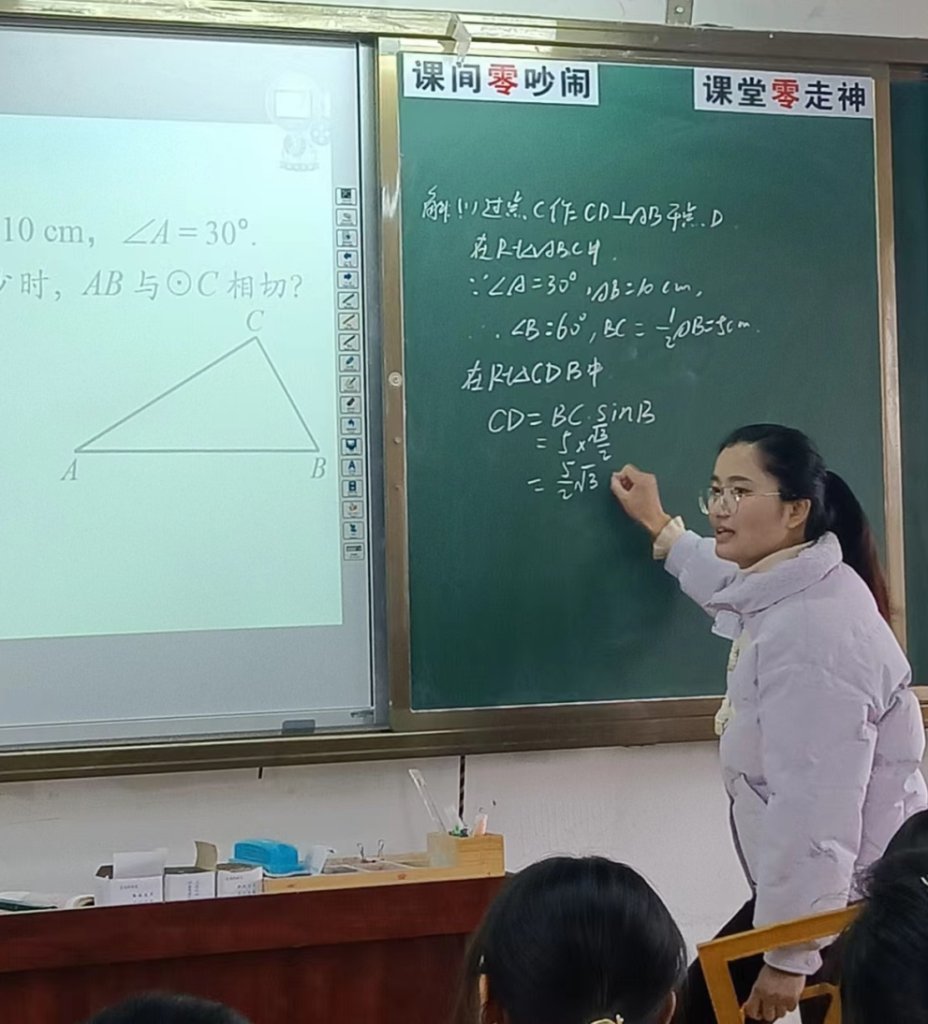 课间零吵闹
课堂零走神
10 cm，∠A=30°.
时，AB与⊙C相切？
C
A
B
解(1)过点C作CD⊥AB于点D
在Rt△ABC中
∵∠A=30°,AB=10cm,
∴∠B=60°,BC=\frac{1}{2}AB=5cm.
在Rt△CDB中
CD=BC·sinB
=5×\frac{√3}{2}
=\frac{5}{2}√3